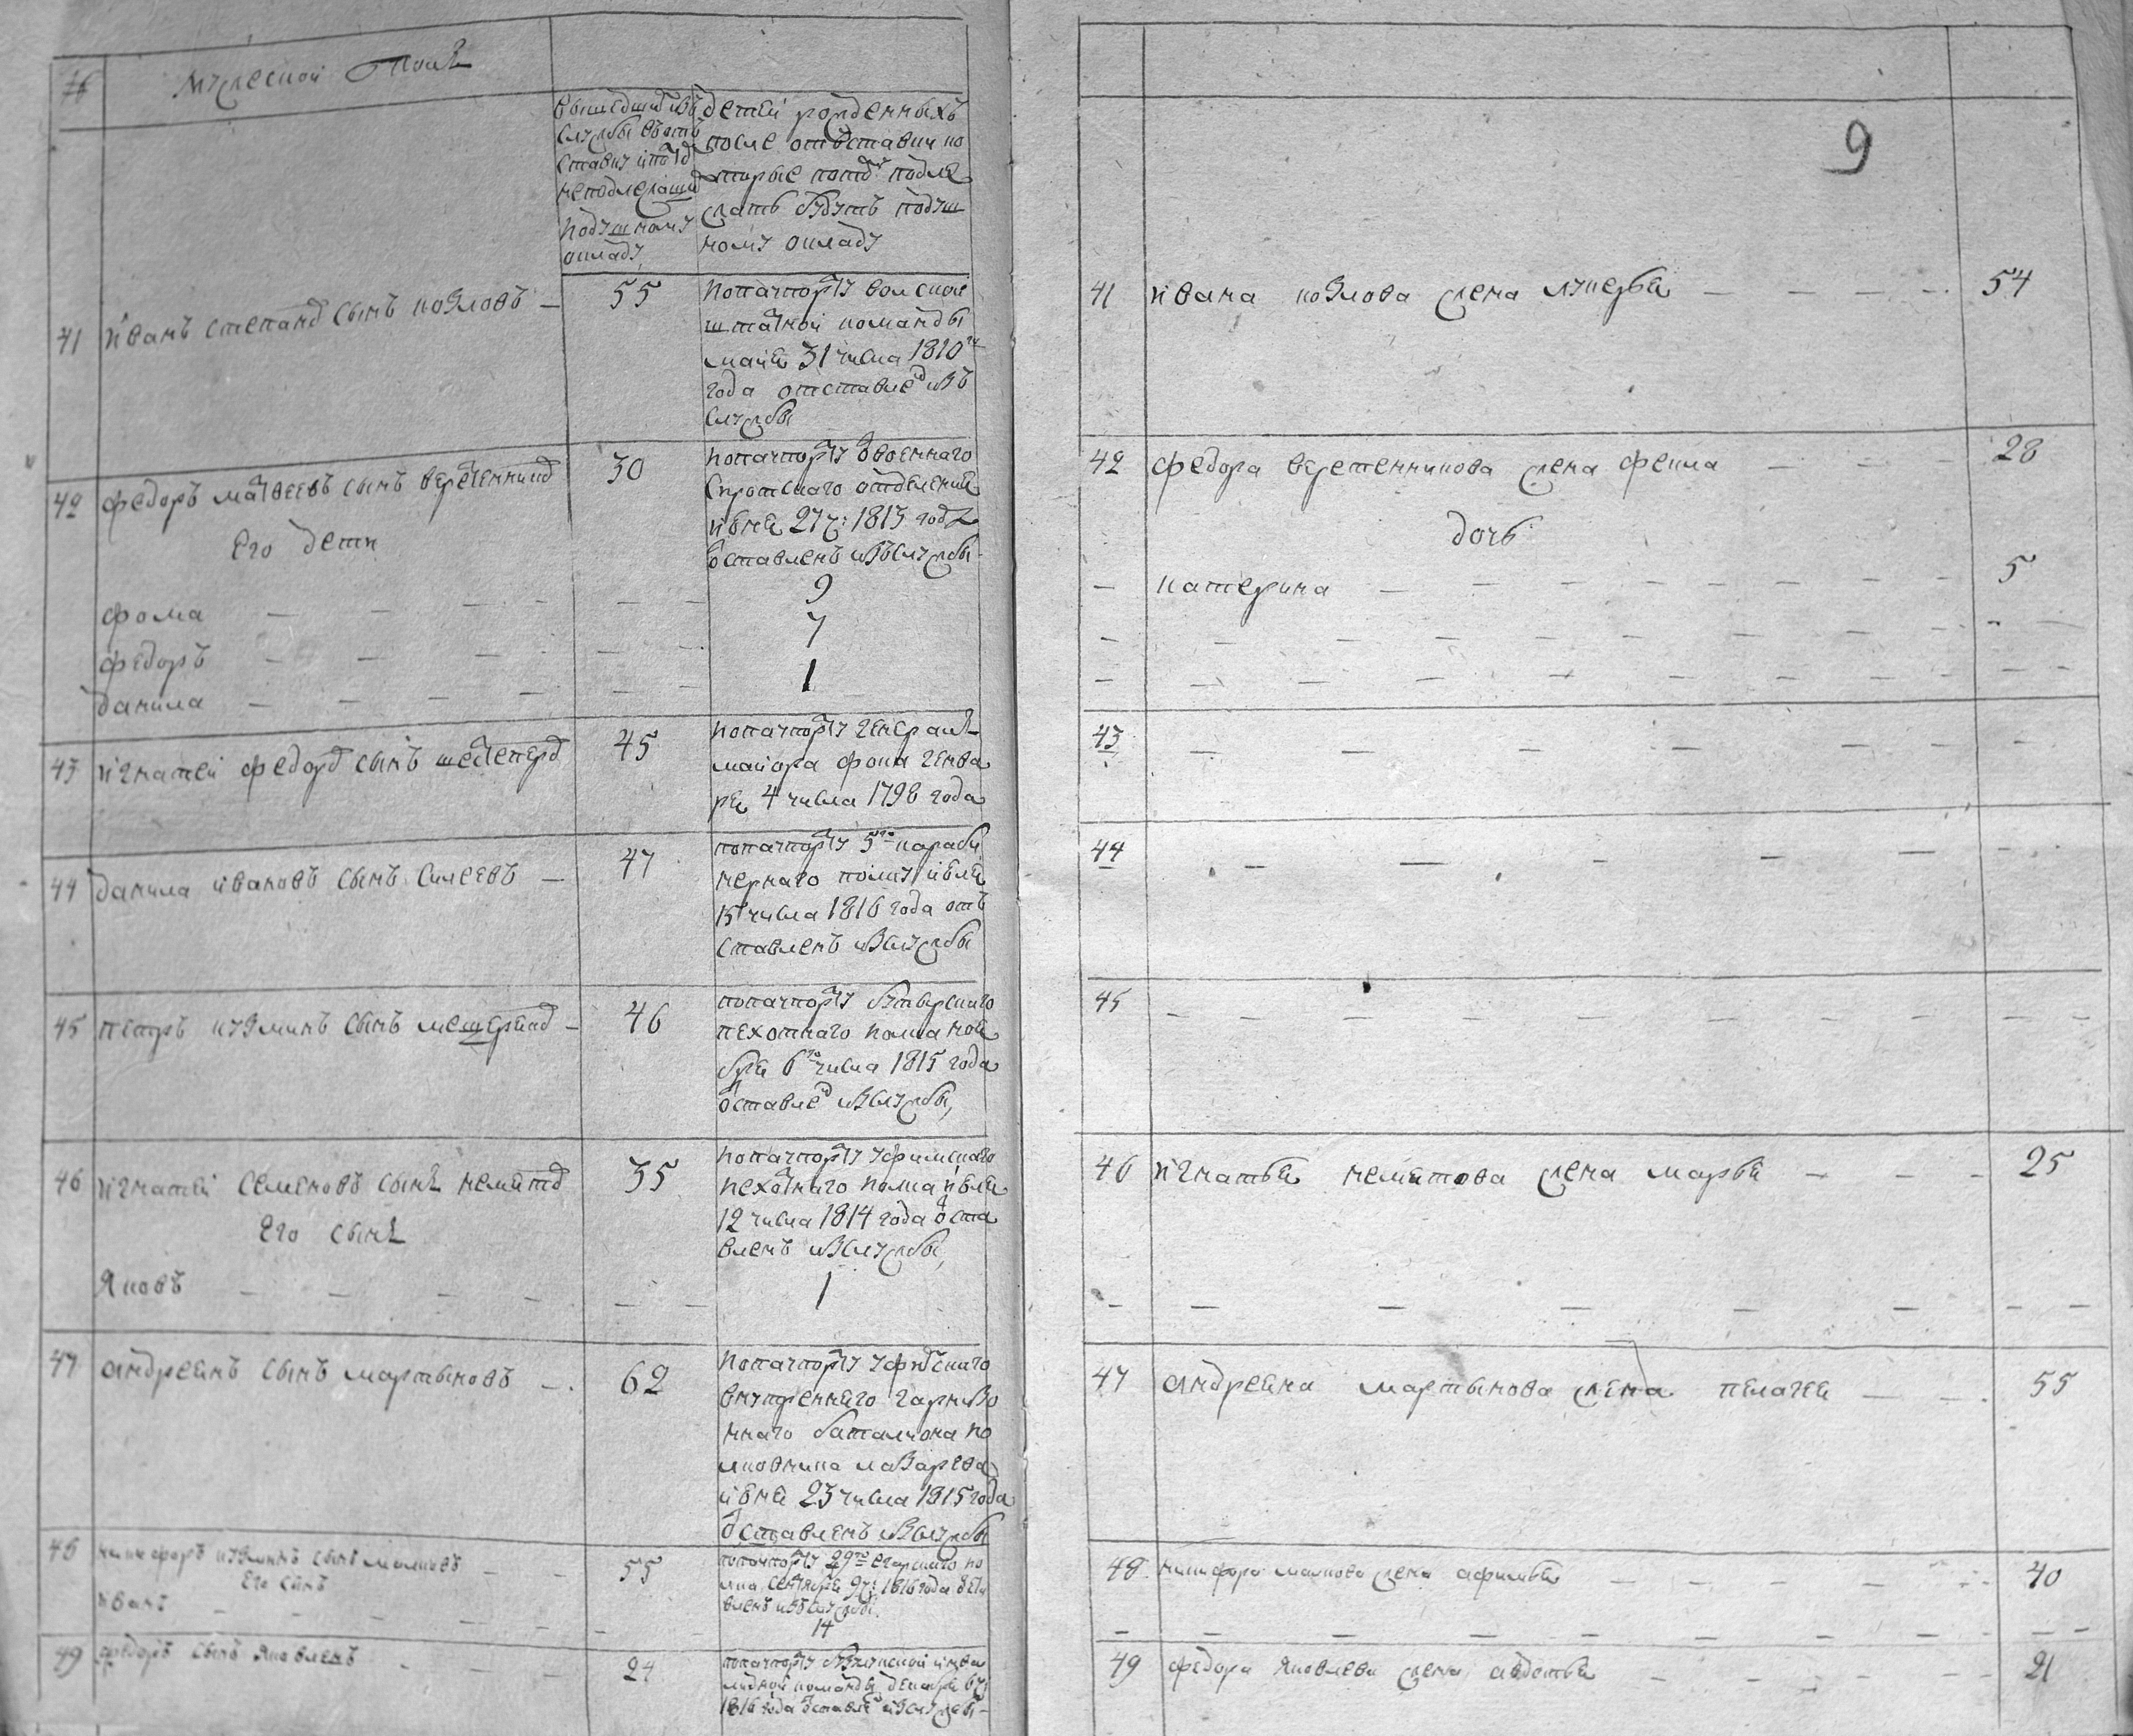 №
Мужеской Полъ
вышедших изъ
службы въ отъ
ставку и потд
неподлежащих
подушному
окладу
детей рожденныхъ
после отъставки ко
торые потд подле
жать будутъ подуш
ному окладу
41
иванъ степанов сынъ козловъ
55
попачпорту волской
штатной команды
майя 31 числа 1810 го
года отставлен изъ
службы
42
федоръ матвеевъ сынъ веретенников
30
попачпорту военнаго
сиротскаго отделения
июня 27 ч: 1813 года
отставленъ изъ службы
его дети
фома
9
федоръ
7
данила
1
43
игнатей федоров сынъ шестепер
45
попачпорту генералъ
майора фока генва
ря 4 числа 1798 года
44
данила ивановъ сынъ силеевъ
47
попачпорту 5го караби
нернаго полку июля
15 числа 1816 года отъ
ставленъ из службы
45
петръ кузминъ сынъ мещеряков
46
попачпорту бутырскаго
пехотнаго полка ноя
бря 6го числа 1815 года
отставлен из службы,
46
игнатей семеновъ сынъ немытов
35
попачпорту уфимскаго
пехотнаго полка июля
12 числа 1814 года отста
вленъ из службы,
его сынъ
Яковъ
1
47
андреянъ сынъ мартыновъ
62
попачпорту уфимскаго
внутренняго гарнизо
ннаго баталиона по
лковника лазарева
июня 23 числа 1815 года
отставленъ из службы
48
никифоръ кузминъ сынъ малковъ
55
попачпорту 29го егарскаго по
лка сентября 9 ч: 1816 года отста
вленъ изъ службы.
его сынъ
иванъ
14
49
федоръ сынъ Яковлевъ
24
попачпорту бузулукской инва
лидной команды декабря 6 ч:
1816 года отставлен из службы
9
41 ивана козлова жена лукерья 54
42 федора веретенникова жена фекла 28
дочь
катерина 5
43
44
45
46 игнатья немытова жена марья 25
47 андреяна мартынова жена пелагея 55
48 никифора малкова жена афимья 40
49 федора Яковлева жена авдотья 21